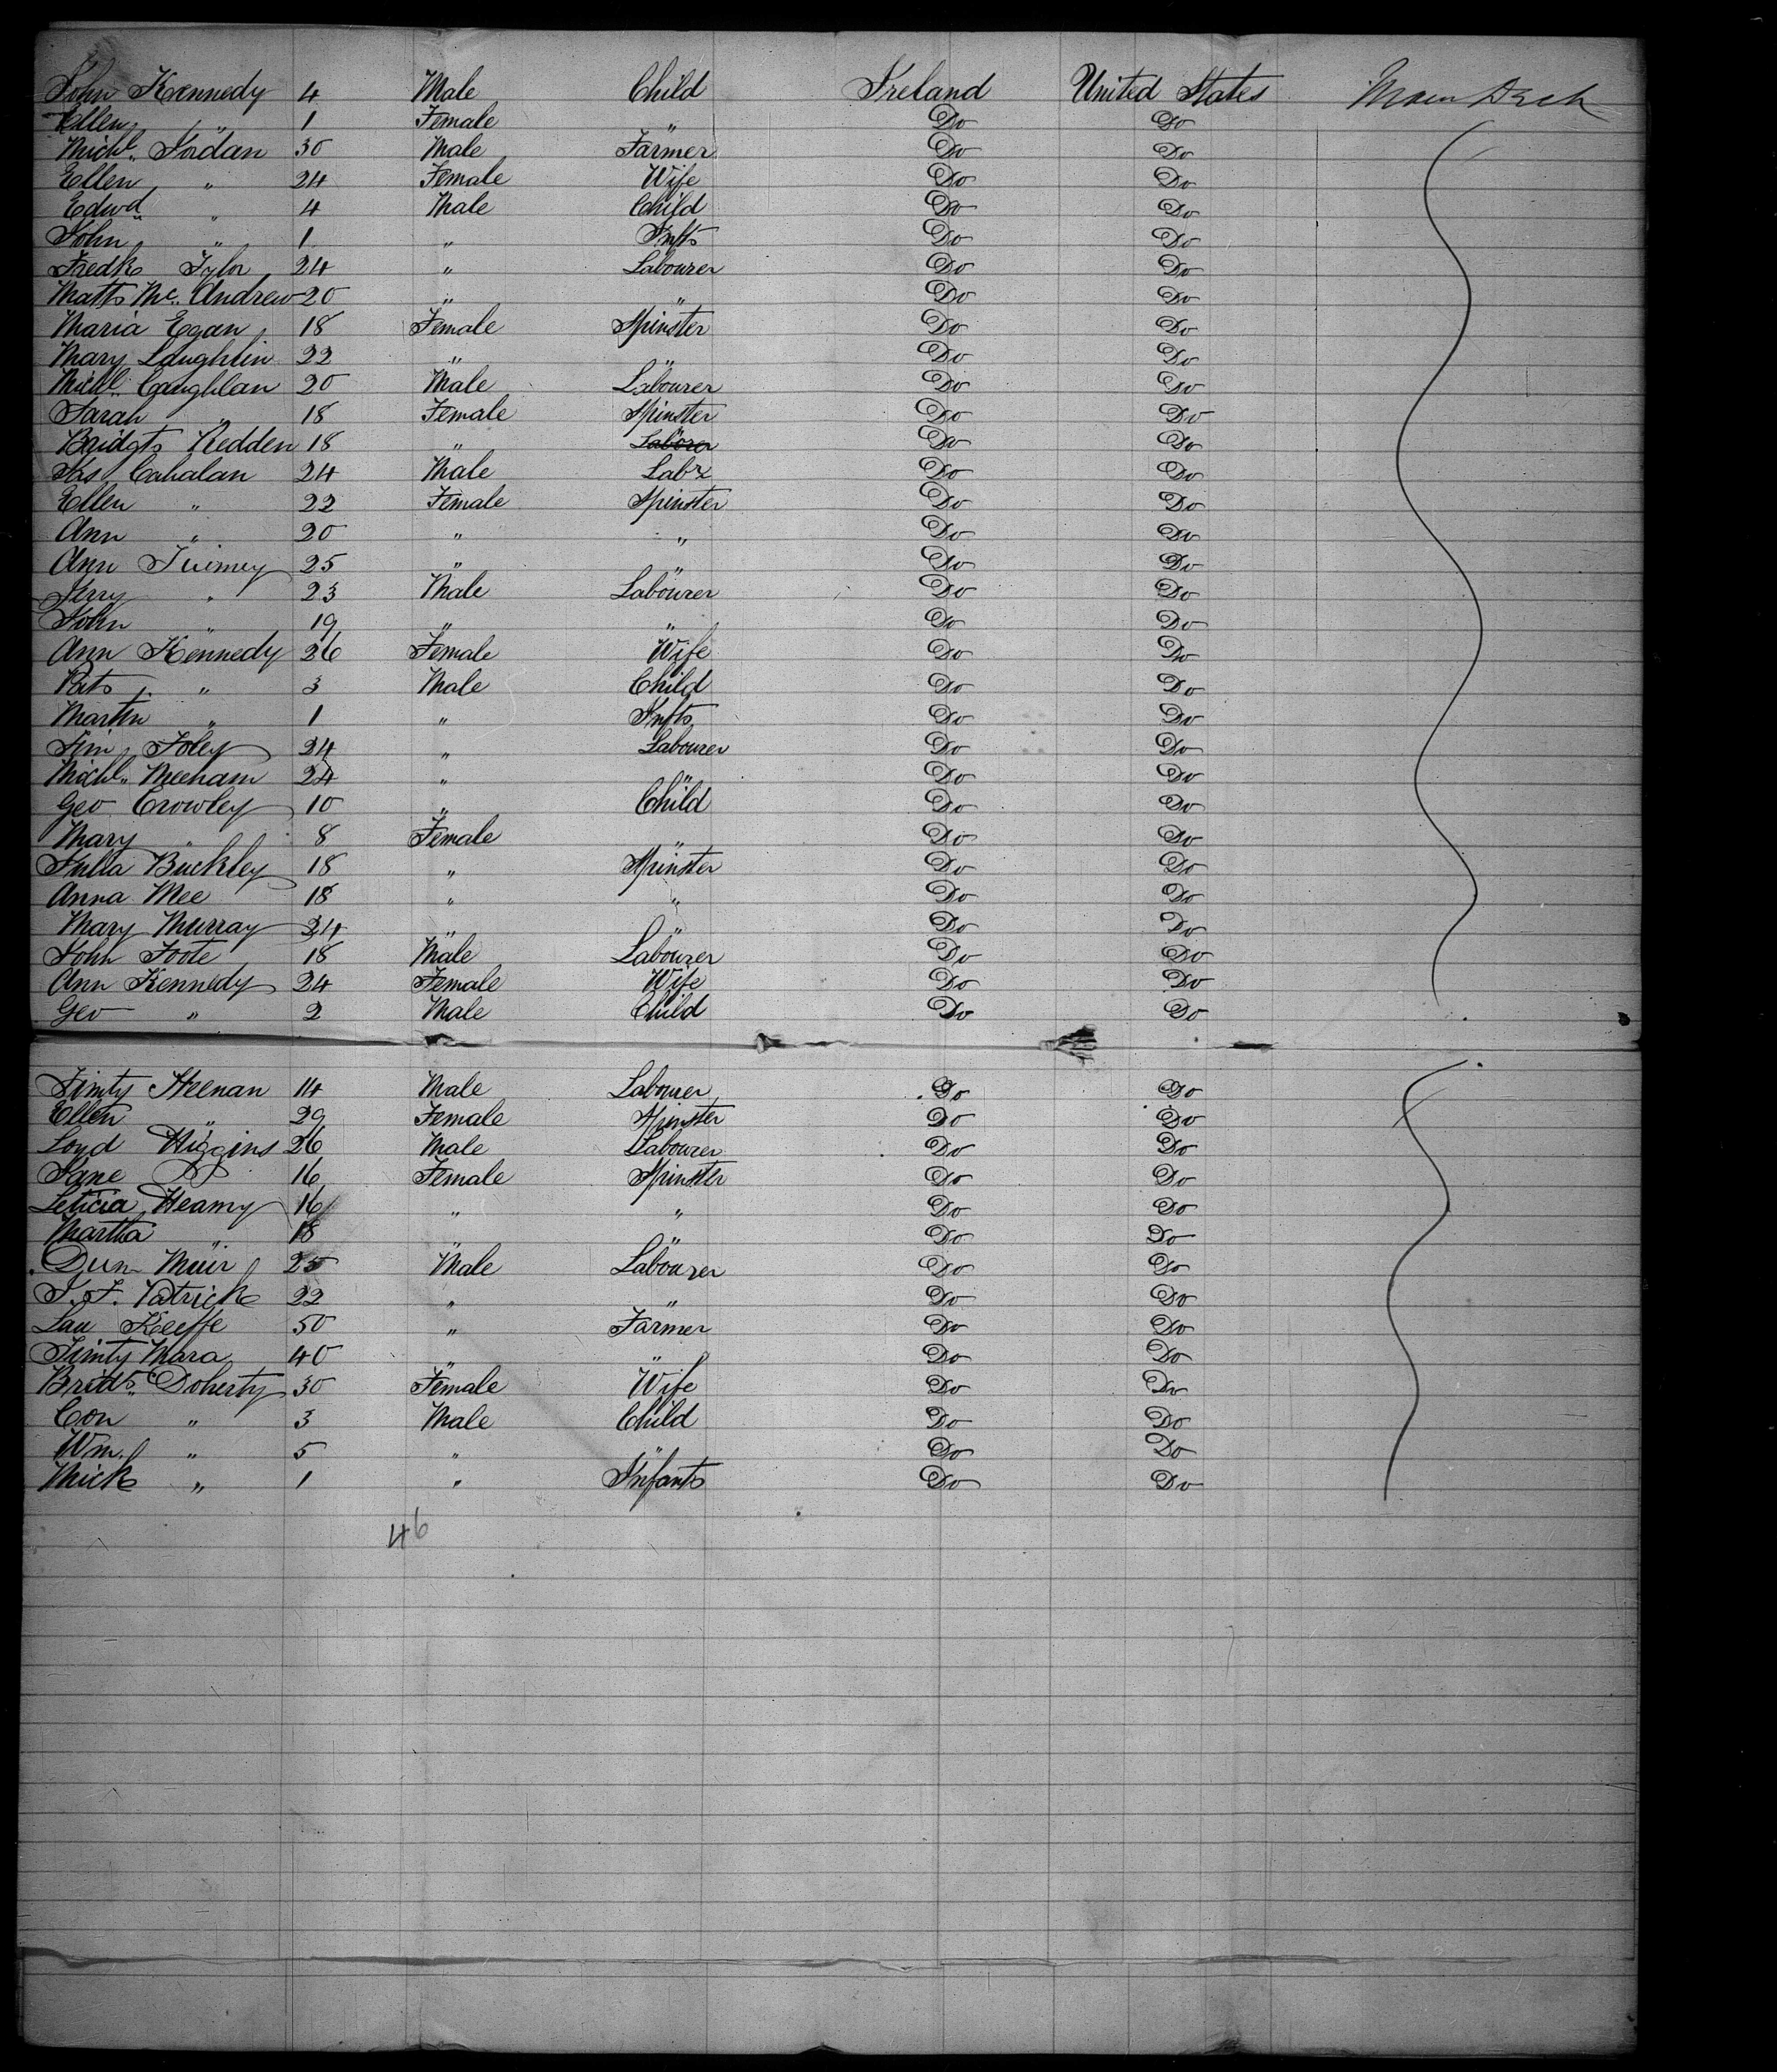 John Kennedy 4 Male Child Ireland United States Main Deck
Ellen " 1 Female " Do Do
Michl. Jordan 30 Male Farmer Do Do
Ellen " 24 Female Wife Do Do
Edwd " 4 Male Child Do Do
John " 1 " Inft Do Do
Fredk Tylor 24 " Labourer Do Do
Matt Mc. Andrew 20 " " Do Do
Maria Egan 18 Female Spinster Do Do
Mary Loughlin 22 " " Do Do
Michl. Caughlan 20 Male Labourer Do Do
Sarah " 18 Female Spinster Do Do
Bridgt Redden 18 " Do Do
Jas Cahalan 24 Male Labr Do Do
Ellen " 22 Female Spinster Do Do
Ann " 20 " " Do Do
Ann 25 " " Do Do
Jerry " 23 Male Labourer Do Do
John " 19 " " Do Do
Ann Kennedy 26 Female Wife Do Do
Pat " 3 Male Child Do Do
Martin " 1 " Inft Do Do
Tim Foley 24 " Labourer Do Do
Michl. Meeham 24 " " Do Do
Geo Crowley 10 " Child Do Do
Mary " 8 Female " Do Do
Julia Buckley 18 " Spinster Do Do
Anna Mee 18 " " Do Do
Mary Murray 24 " " Do Do
John Foote 18 Male Labourer Do Do
Ann Kennedy 24 Female Wife Do Do
Geo " 2 Male Child Do Do
Timty Heenan 14 Male Labourer Do Do
Ellen " 29 Female Spinster Do Do
Loyd Higgins 26 Male Labourer Do Do
Jane 16 Female Spinster Do Do
Leticia Heamy 16 " " Do Do
Martha " 18 " " Do Do
Dun Muir 25 Male Labourer Do Do
J. F. Patrick 22 " " Do Do
Lau Keeffe 50 " Farmer Do Do
Timty Mara 40 " " Do Do
Bridt. Doherty 30 Female Wife Do Do
Con " 3 Male Child Do Do
Wm. " 5 " " Do Do
Mick " 1 " Infant Do Do
46